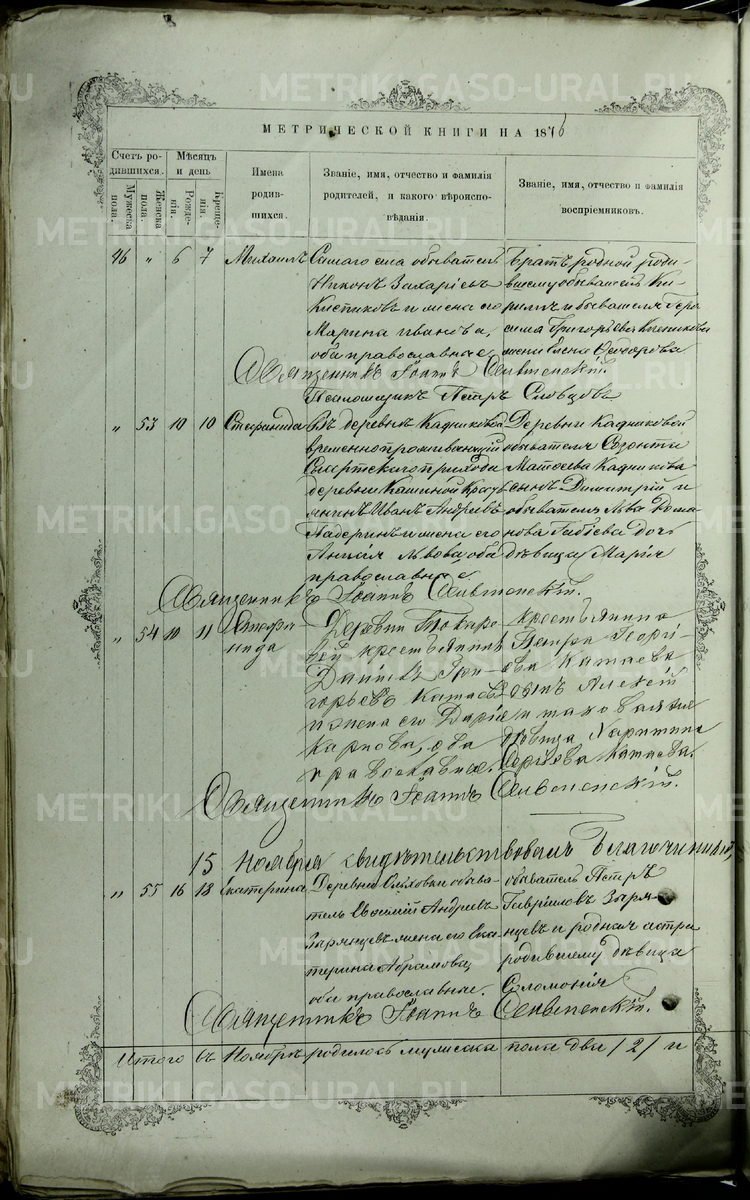 МЕТРИЧЕСКОЙ КНИГИ НА 1876
Счетъ родившихся.
Мужеска пола.
Женска пола.
Мѣсяцъ и день
Рожденія.
Крещенія.
Имена родившихся.
Званіе, имя, отчество и фамилія родителей, и какого вѣроисповѣданія.
Званіе, имя, отчество и фамилія воспріемниковъ.
46 „ 6 7 Михаилъ
Самаго села обыватель
Никонъ Захаріевъ
и жена его
Марина Иванова,
оба православные.
Братъ родной роди-
вшему обыватель Ки-
рилъ и обывателя Гера
сима Григорьева
жена Елена Ѳеодорова
Священникъ Іоаннъ
Псаломщикъ Петръ Словцовъ
„ 53 10 10 Стефанида
Въ деревнѣ Кадниковой
временнопроживающій
прихода
деревни Кашиной Кресть
янинъ Иванъ Андреевъ
Падеринъ и жена его
Анисія Львова, оба
православные.
Деревни Кадниковой
обывателя Созонта
Матѳеева Кадникова
сынъ Димитрій и
обывателя Льва
дочь
дѣвица Марія
Священникъ Іоаннъ
„ 54 10 11 Стефа-
нида
Деревни Токаре-
вой крестьянинъ
Даніилъ Гри-
горьевъ Катаевъ
и жена его Дарія
Карпова, оба
православные.
крестьянина
Петра Георгі-
ева Катаева
сынъ Алексій
и того
дѣвица Харитина
Катаева.
Священникъ Іоаннъ
15 Ноября свидѣтельствовалъ Благочинный,
„ 55 16 18 Екатерина
Деревни Ольховки обыва-
тель Евѳимій Андреевъ
Зырянцевъ жена его Ека
терина Абрамова,
оба православные.
обыватель Петръ
Гавріиловъ Зыря-
нцевъ и родная сестра
родившему дѣвица
Соломонія
Священникъ Іоаннъ
Итого въ Ноябрѣ родилось мужеска пола два /2/ и
METRIKI.GASO-URAL.RU